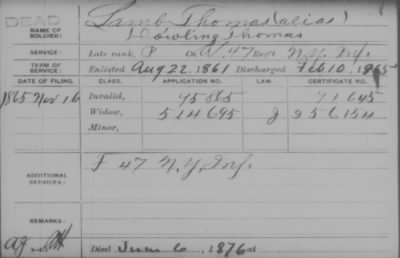 DEAD
NAME OF SOLDIER: Lamb Thomas (alias)
Dowling Thomas
SERVICE: Late rank, P Co. A. 47 Reg't Inf.
TERM OF SERVICE: Enlisted Aug 22, 1861 Discharged Feb 10, 1865
DATE OF FILING. CLASS. APPLICATION NO. LAW. CERTIFICATE NO.
1865 Nov 16 Invalid, 95865 71645
Widow, 514695 J 356154
Minor,
ADDITIONAL SERVICES: F 47 N.Y. Inf.
REMARKS:
Died June 6, 1876 at